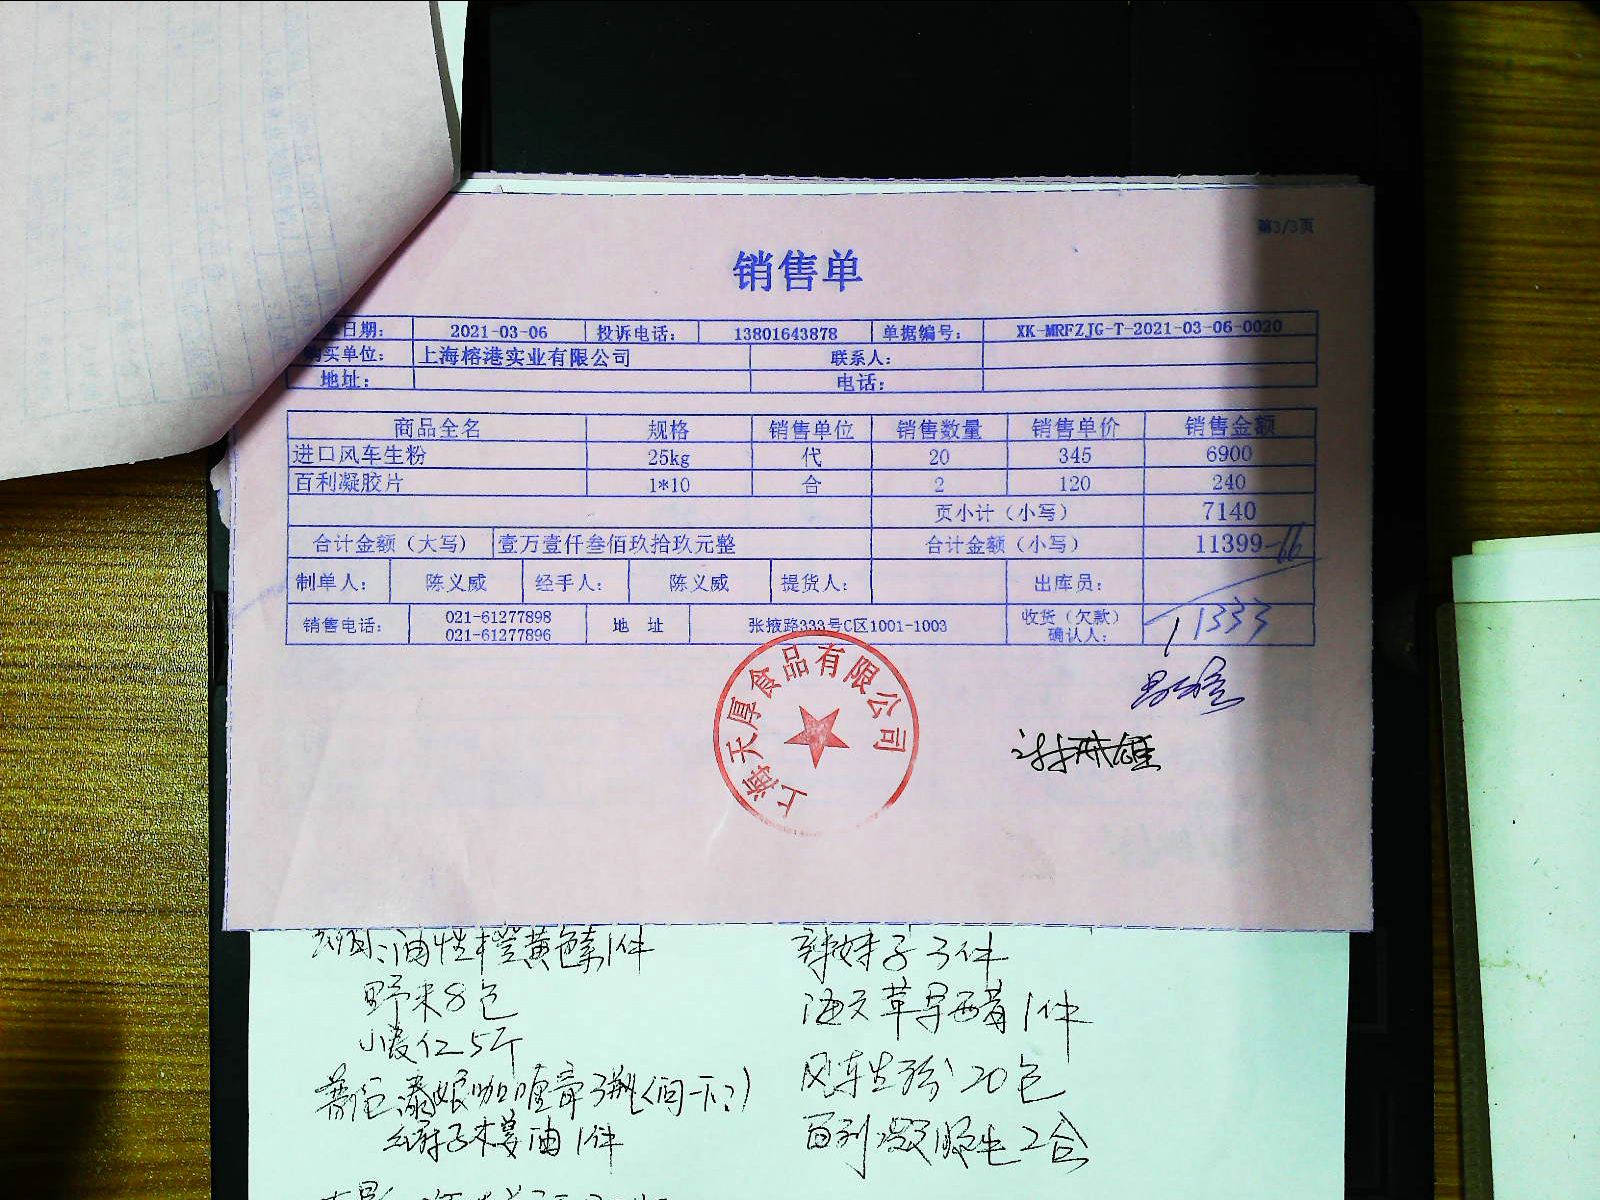 第3/3页
销售单
日期： 2021-03-06 投诉电话： 13801643878 单据编号： XK-MRFZJG-T-2021-03-06-0020
购买单位： 上海榕港实业有限公司 联系人：
地址： 电话：
商品全名 规格 销售单位 销售数量 销售单价 销售金额
进口风车生粉 25kg 代 20 345 6900
百利凝胶片 1*10 合 2 120 240
页小计（小写） 7140
合计金额（大写） 壹万壹仟叁佰玖拾玖元整 合计金额（小写） 11399-66
制单人： 陈义威 经手人： 陈义威 提货人： 出库员：
销售电话： 021-61277898 地 址 张掖路333号C区1001-1003 收货（欠款）
021-61277896 确认人：
11333
上海天厚食品有限公司
油性橙黄色素1件 辣妹子3件
野米8包 海天草菇 1件
小麦仁5斤 风车生粉20包
咖喱章3瓶(问一下?) 百利凝胶片2合
木姜油1件